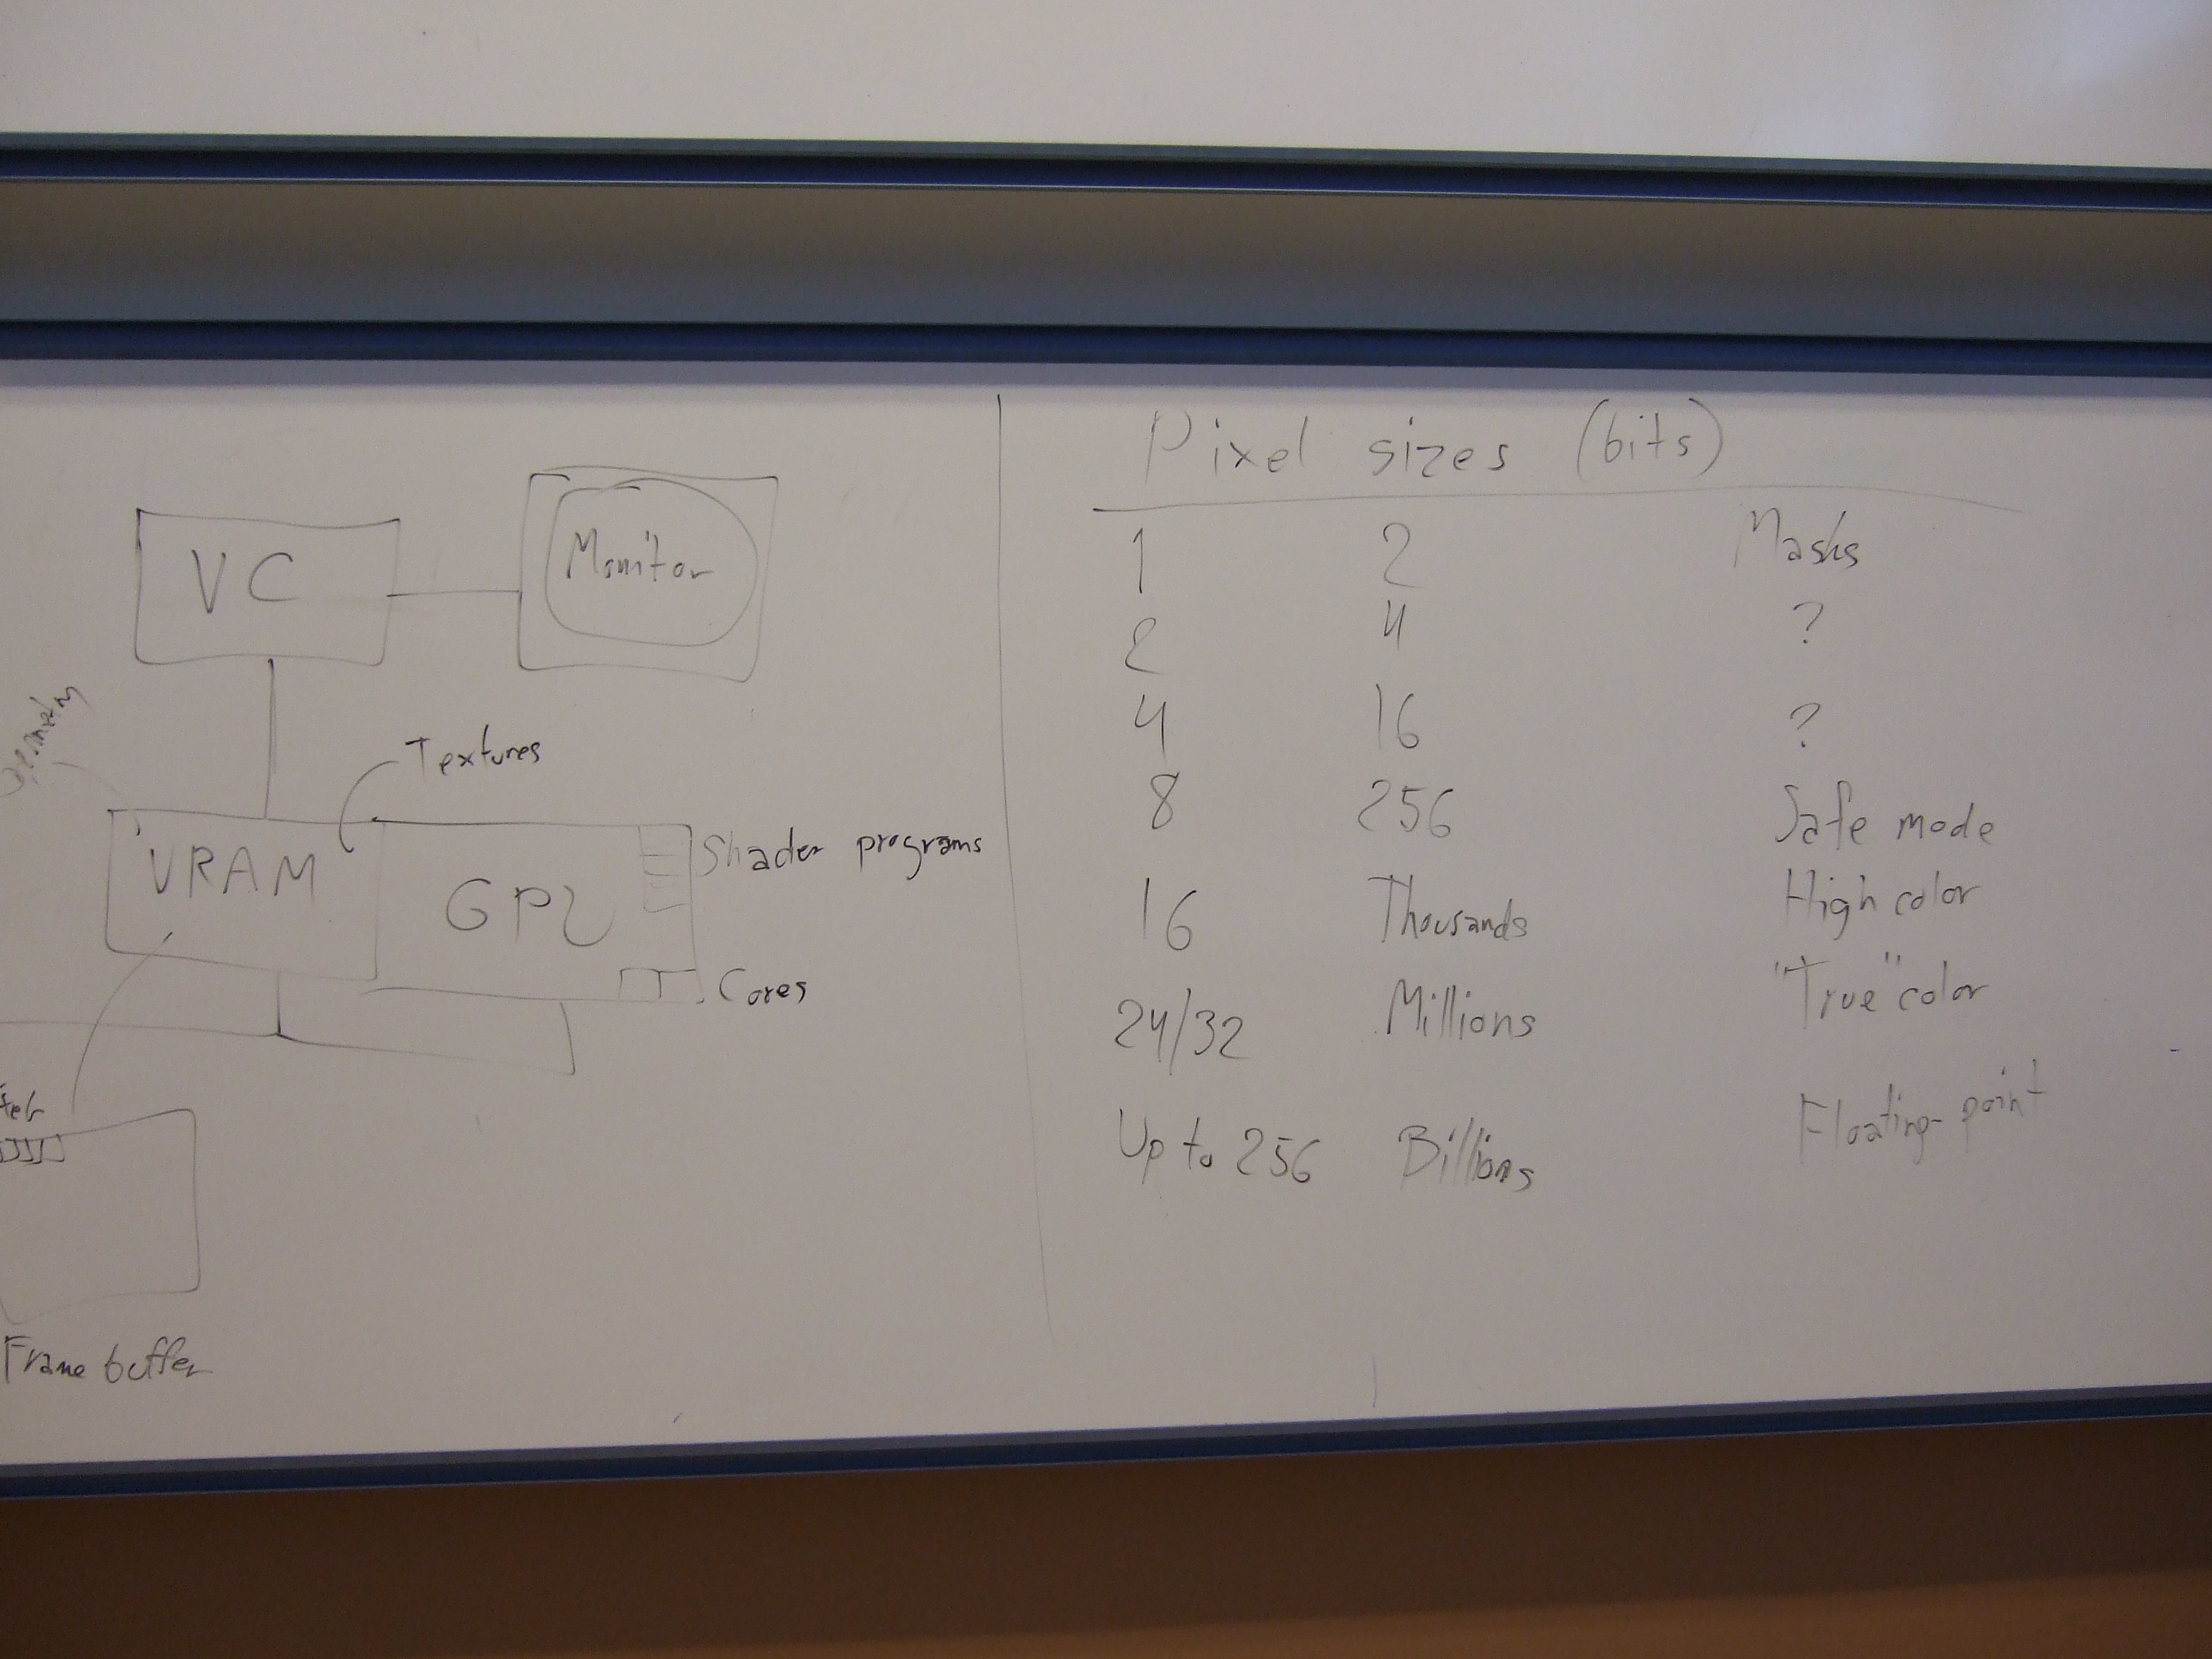 VC
Monitor
Geometry
Textures
VRAM
GPU
Shader programs
Cores
Frame buffer
Pixel sizes (bits)
1 2 Masks
2 4 ?
4 16 ?
8 256 Safe mode
16 Thousands High color
24/32 Millions "True" color
Up to 256 Billions Floating-point